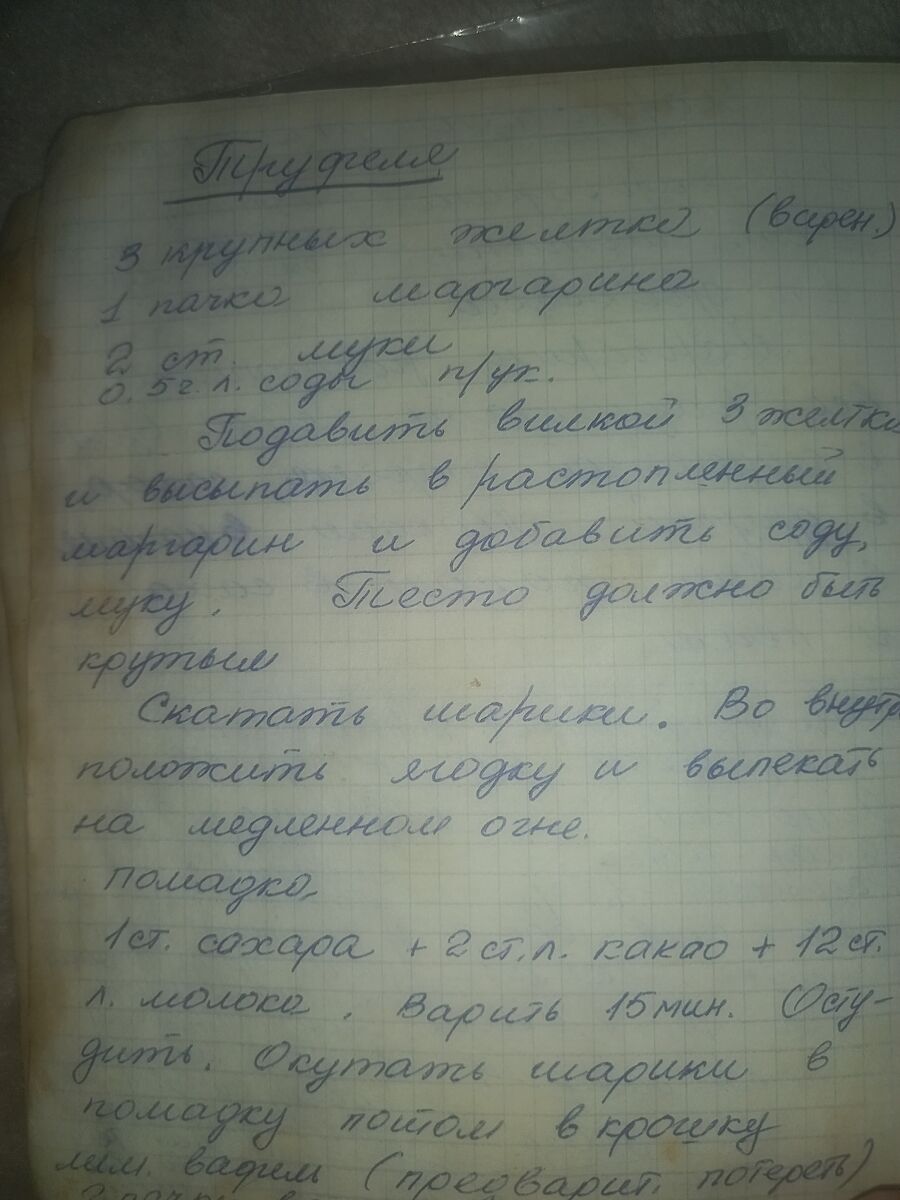 Трюфеля
3 крупных желтка (варен.)
1 пачка маргарина
2 ст. муки
0,5 ч. л. соды п/ук.
Подавить вилкой 3 желтка
и высыпать в растопленный
маргарин и добавить соду,
муку. Тесто должно быть
крутым
Скатать шарики. Во внутрь
положить ягодку и выпекать
на медленном огне.
помадка
1 ст. сахара + 2 ст. л. какао + 12 ст.
л. молока. Варить 15 мин. Осту-
дить. Окутать шарики в
помадку потом в крошку
лим. вафли (предварит. потереть)